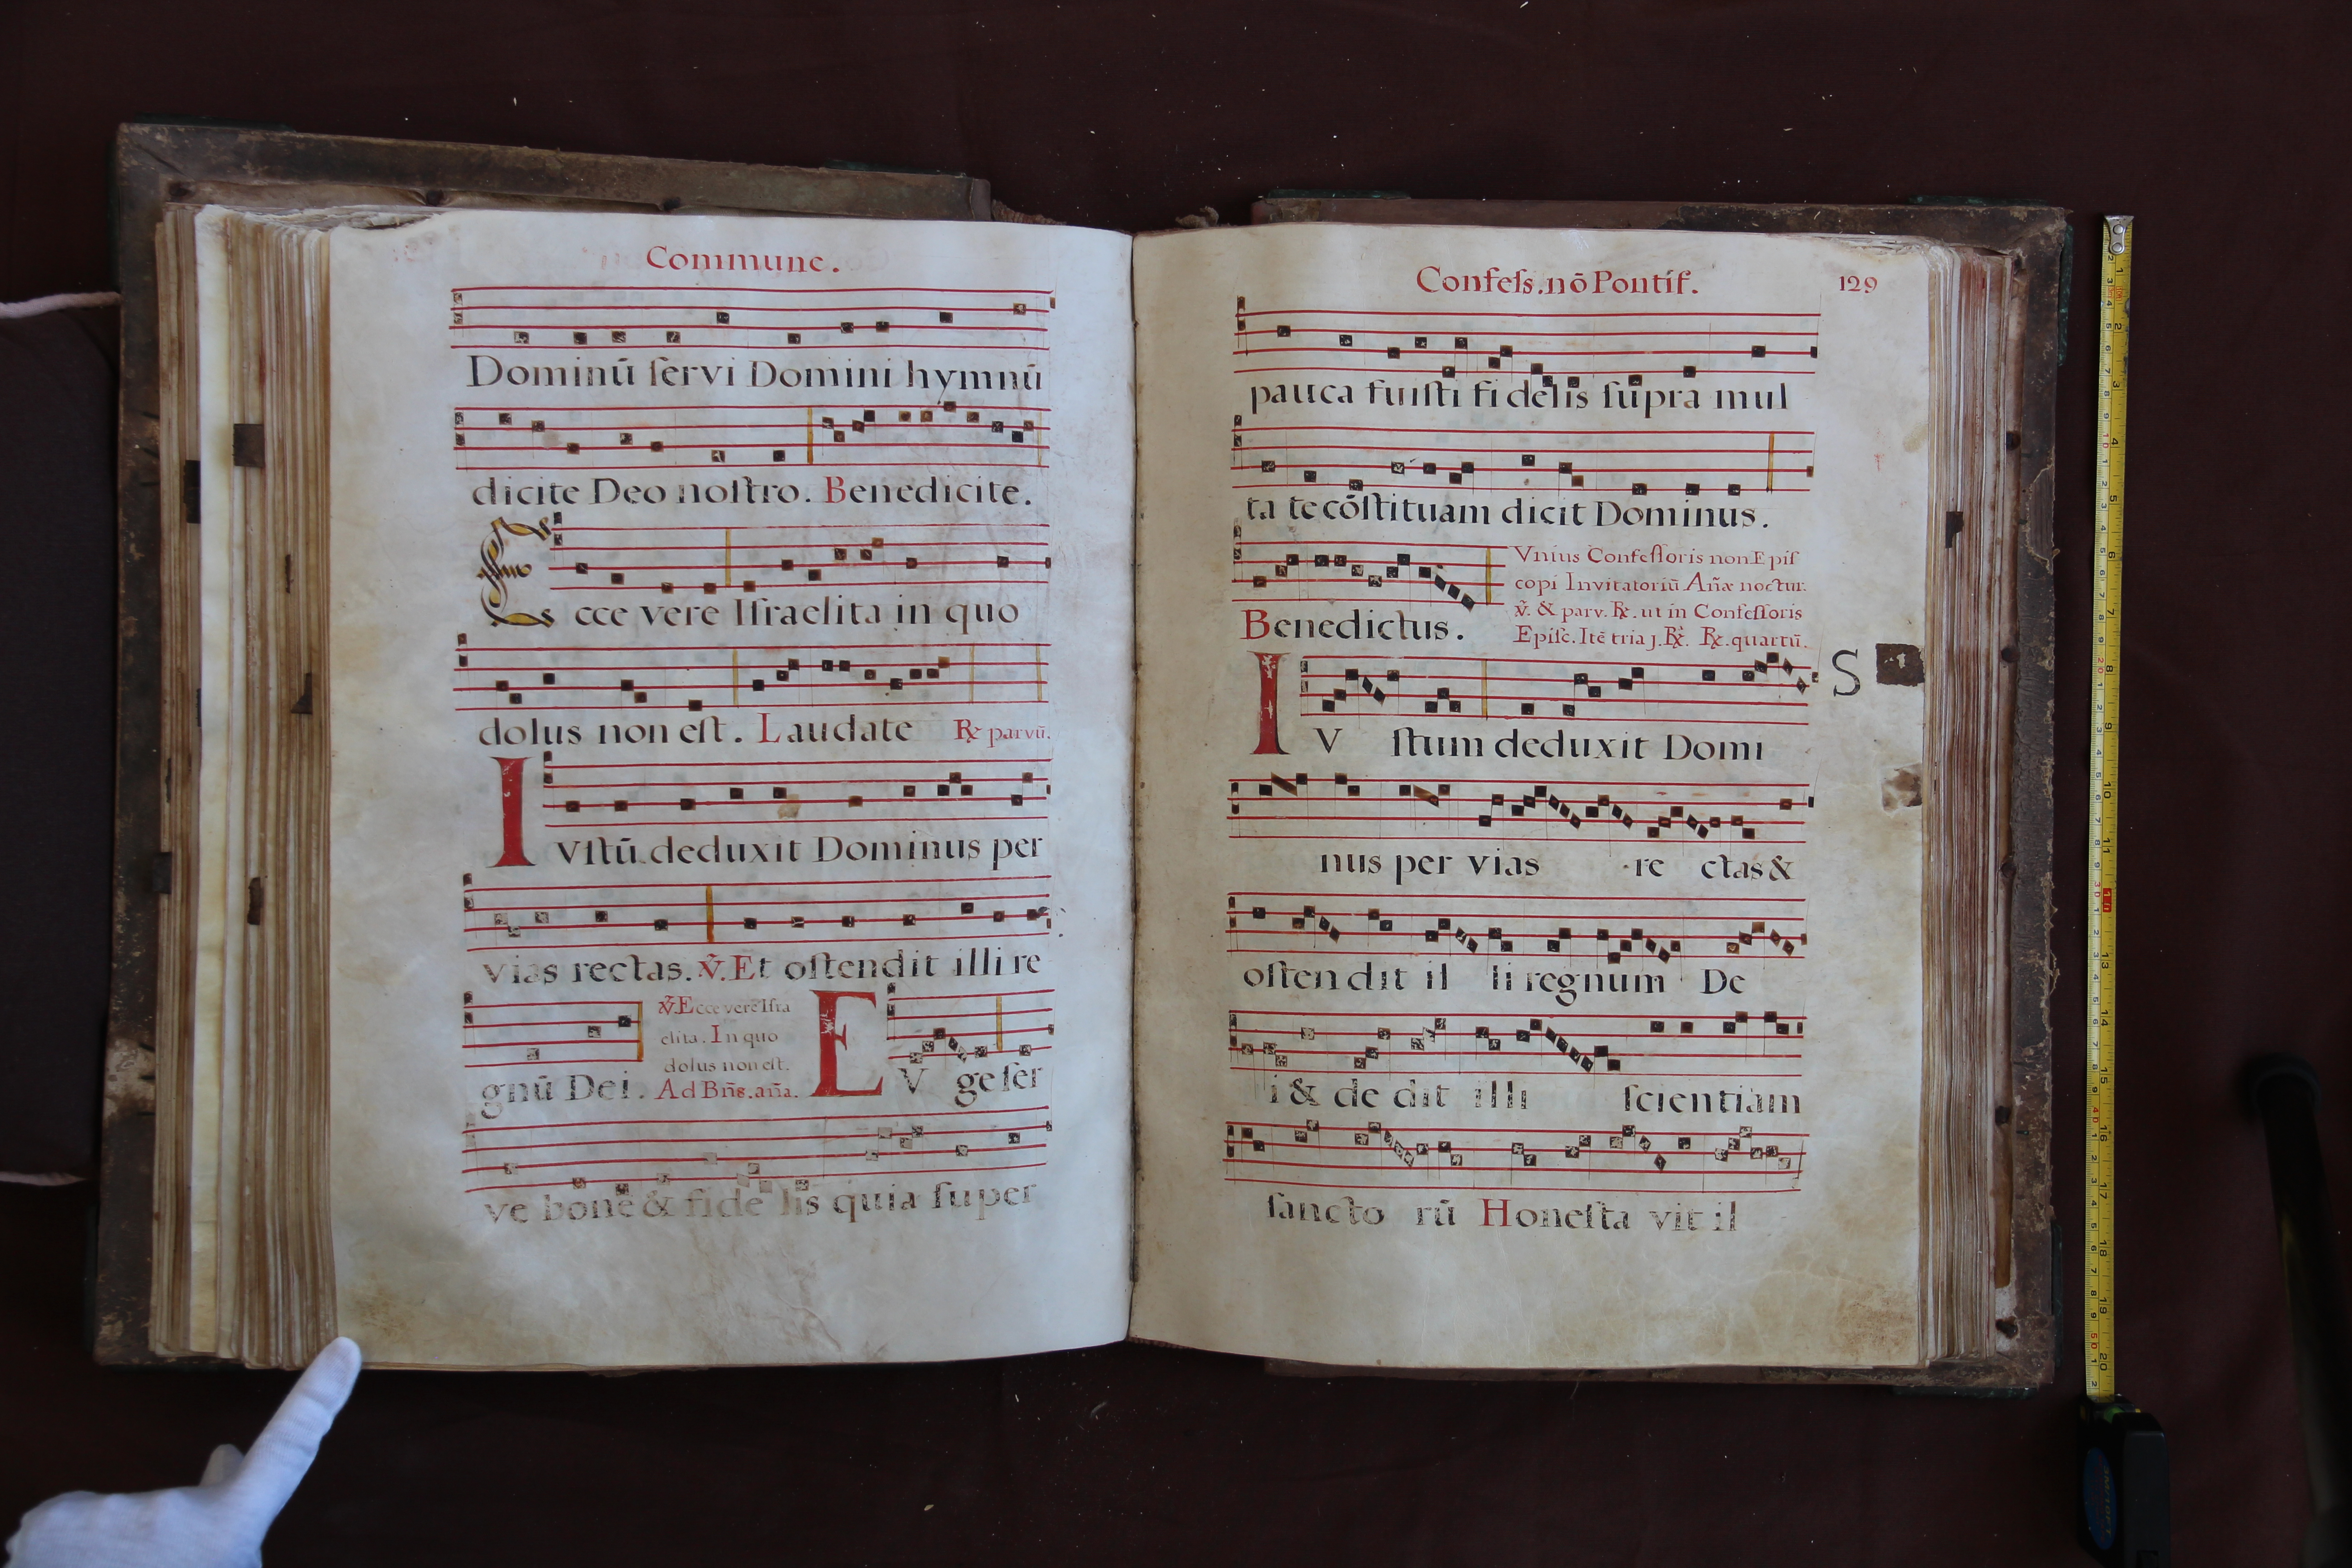 Commune.
Dominū ſervi Domini hymnū
dicite Deo noſtro. Benedicite.
Ecce vere Iſraelita in quo
dolus non eſt. Laudate ℞ parvū.
IVſtū deduxit Dominus per
vias rectas. ℣. Et oſtendit illi re
gnū Dei.
℣. Ecce vere Iſra
elita. In quo
dolus non eſt.
Ad Bn̄s. an̄a.
EV ge ſer
ve bone & fide lis quia ſuper
Confeſs. nō Pontif.
129
pauca fuiſti fi delis ſupra mul
ta te cōſtituam dicit Dominus.
Benedictus.
Vnius Confeſſoris non Epiſ
copi Invitatoriū Añæ noctur.
℣. & parv. ℞. ut in Confeſſoris
Epiſc. Itē tria j. ℞. ℞. quartū.
IV ſtum deduxit Domi
S
nus per vias re ctas &
oſtendit il li regnum De
i & de dit illi ſcientiam
ſancto rū Honeſta vit il